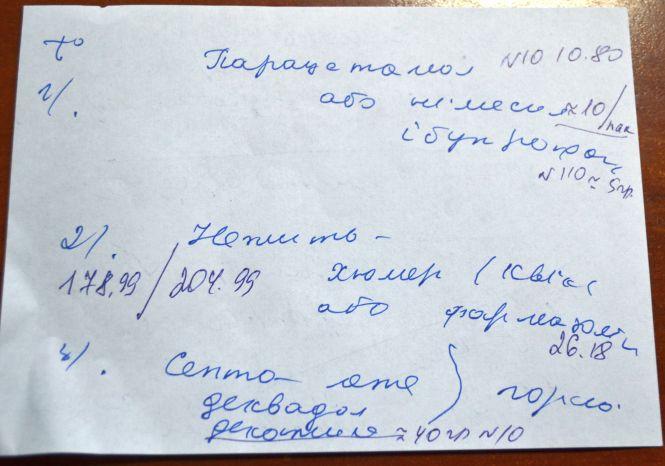 t°
1/. Парацетамол N10 10.80
або німесил ≈10/пак
ібупрофен
N10 ≈ 5гр.
2/. Нежить -
178,99/204.99 хюмер (
або фармазолін
26.18
3/. Септо- лете } горло.
деквадол
декатилен ≈40гр N10